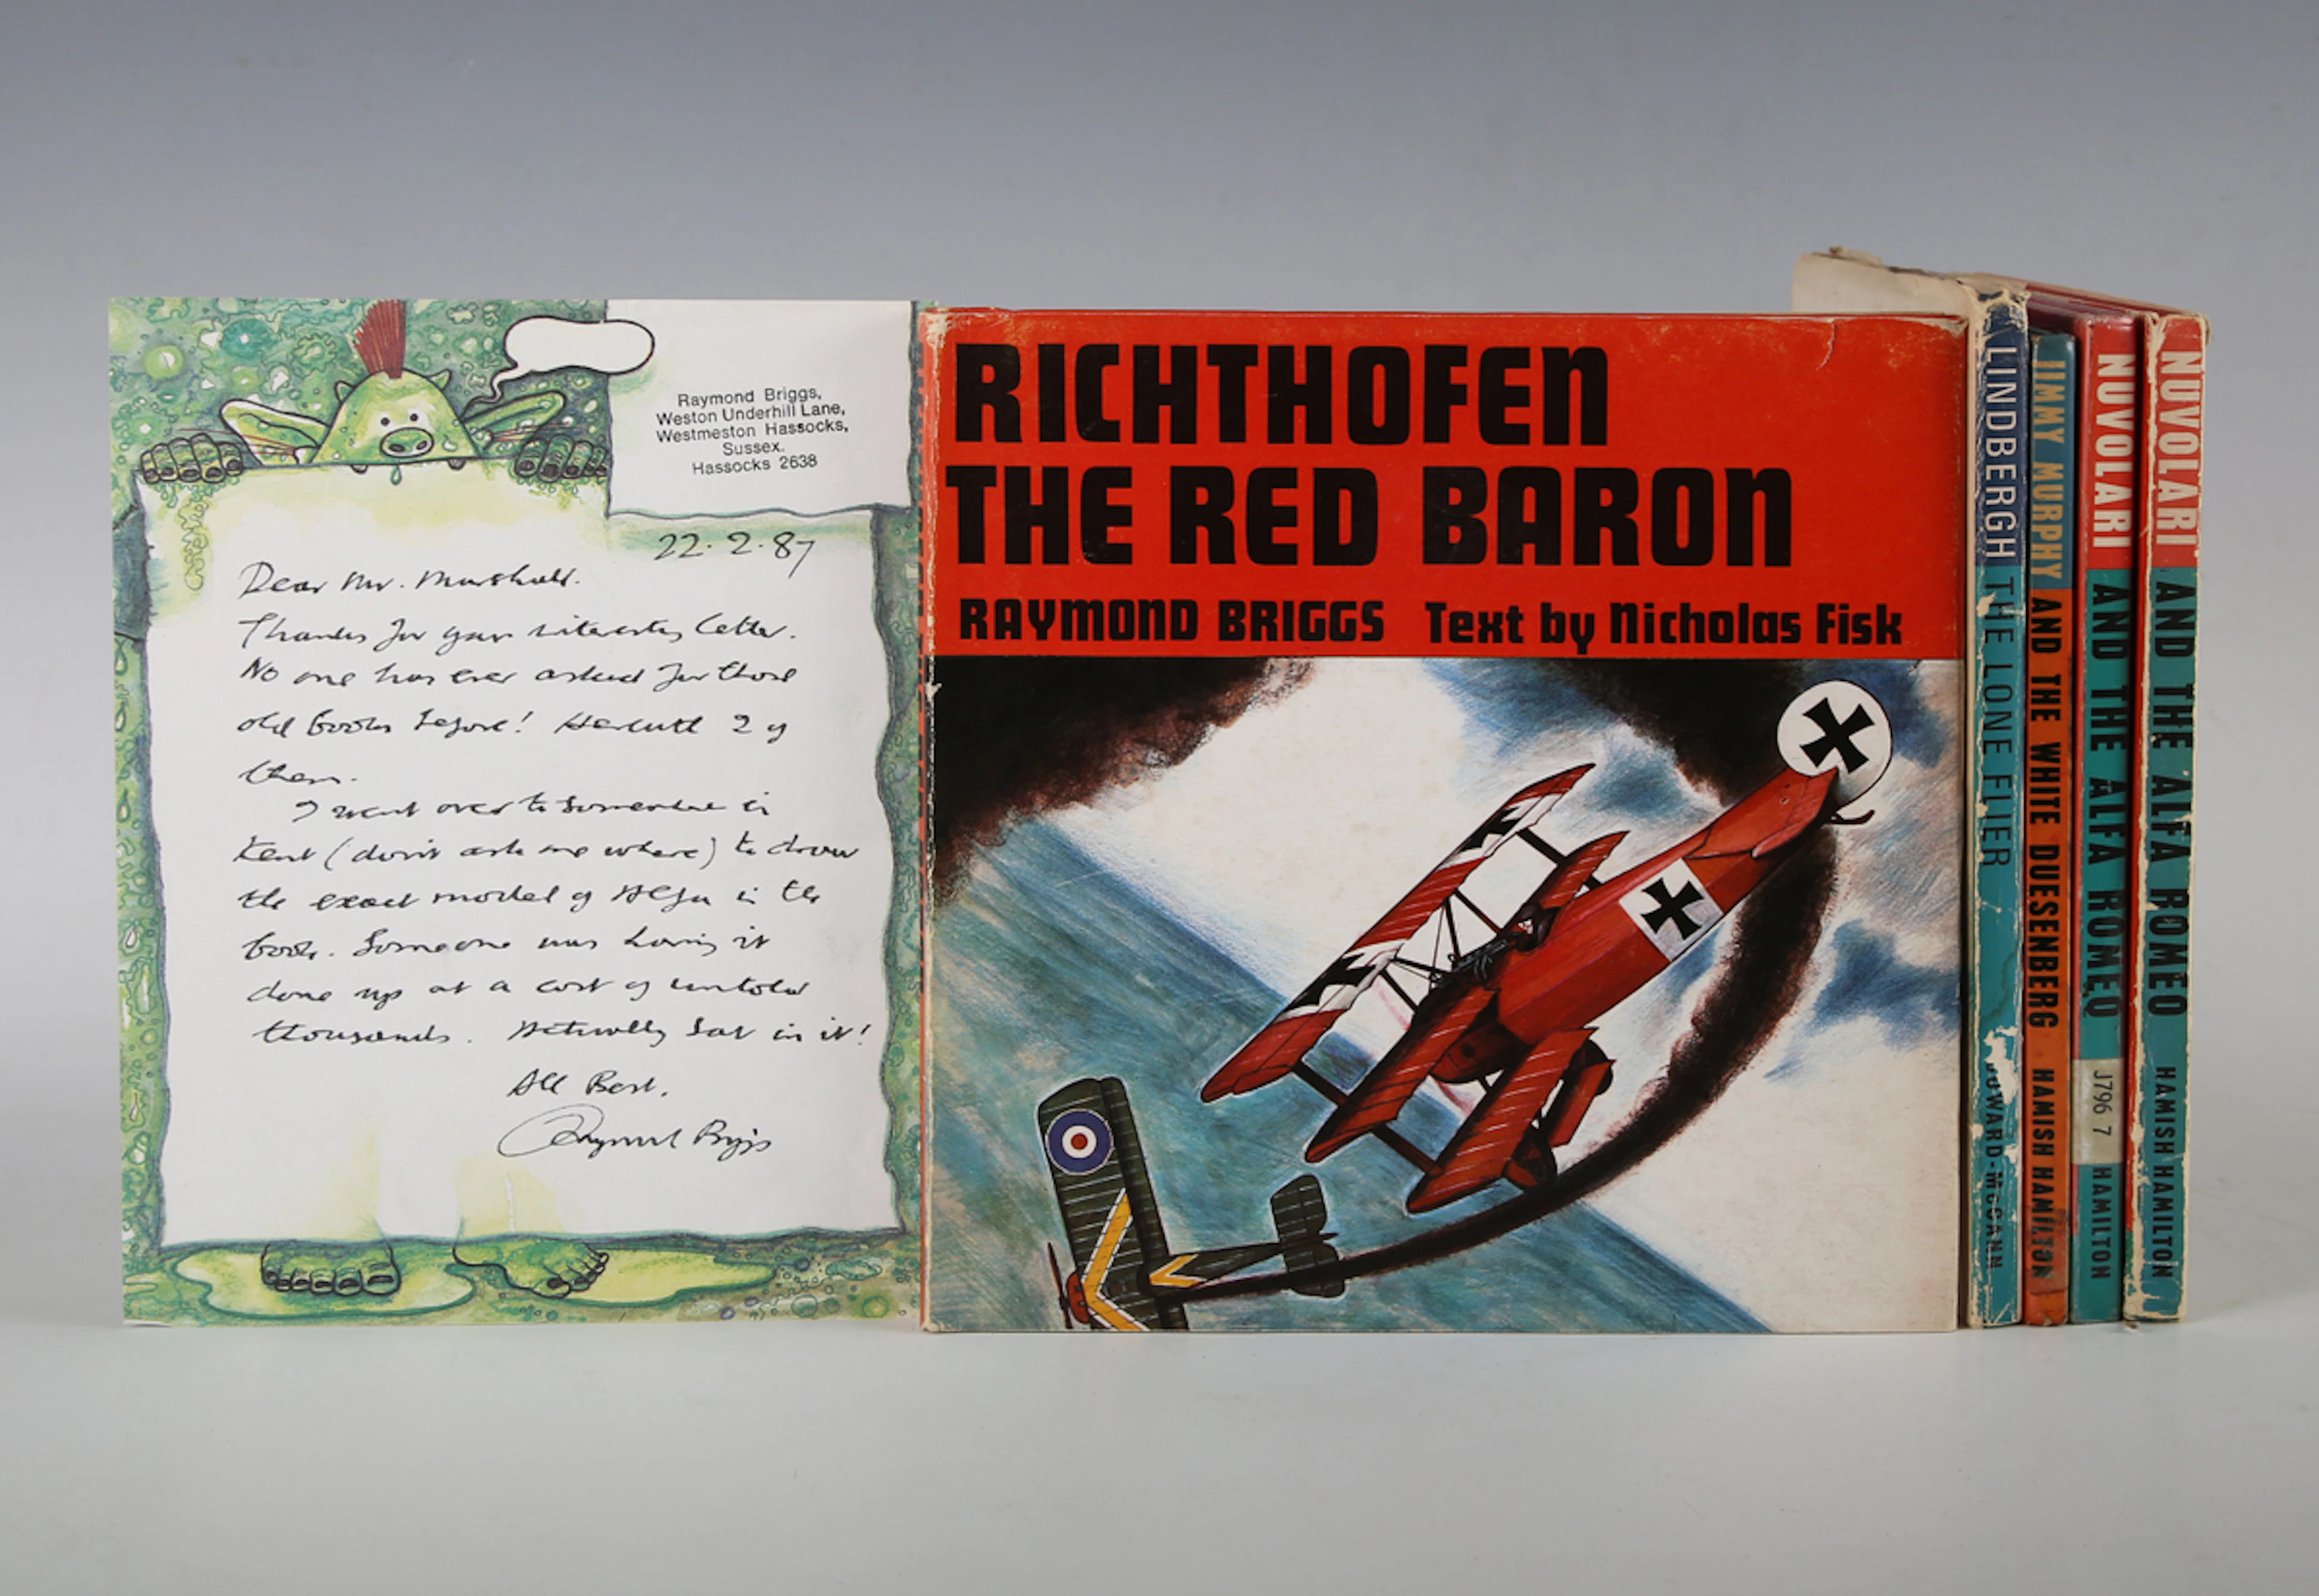 Raymond Briggs,
Weston Underhill Lane,
Westmeston Hassocks,
Sussex.
Hassocks 2638
22.2.87
Dear Mr. Marshall.
Thanks for your interesting letter.
No one has ever asked for those
old books before! Herewith 2 of
them.
I went over to somewhere in
Kent (don't ask me where) to draw
the exact model of Alfa in the
book. Someone was having it
done up at a cost of untold
thousands. Actually sat in it!
All Best.
Raymond Briggs
RICHTHOFEN
THE RED BARON
RAYMOND BRIGGS Text by Nicholas Fisk
LINDBERGH THE LONE FLIER COWARD-McCANN
JIMMY MURPHY AND THE WHITE DUESENBERG HAMISH HAMILTON
NUVOLARI AND THE ALFA ROMEO J796 7 HAMILTON
NUVOLARI AND THE ALFA ROMEO HAMISH HAMILTON